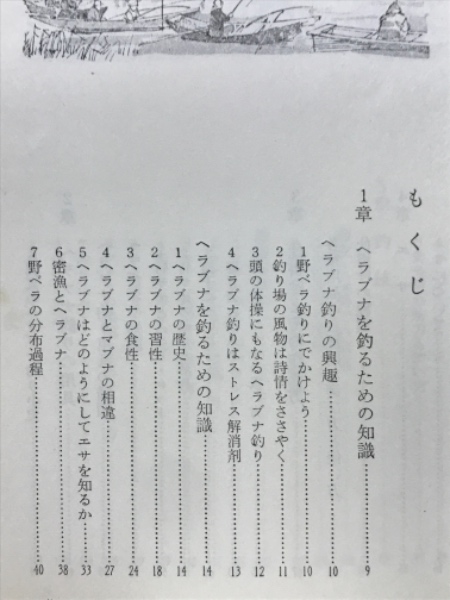 もくじ
1章 ヘラブナを釣るための知識……9
ヘラブナ釣りの興趣……10
1 野ベラ釣りにでかけよう……10
2 釣り場の風物は詩情をささやく……11
3 頭の体操にもなるヘラブナ釣り……12
4 ヘラブナ釣りはストレス解消剤……13
ヘラブナを釣るための知識……14
1 ヘラブナの歴史……14
2 ヘラブナの習性……18
3 ヘラブナの食性……24
4 ヘラブナとマブナの相違……27
5 ヘラブナはどのようにしてエサを知るか……33
6 密漁とヘラブナ……38
7 野ベラの分布過程……40